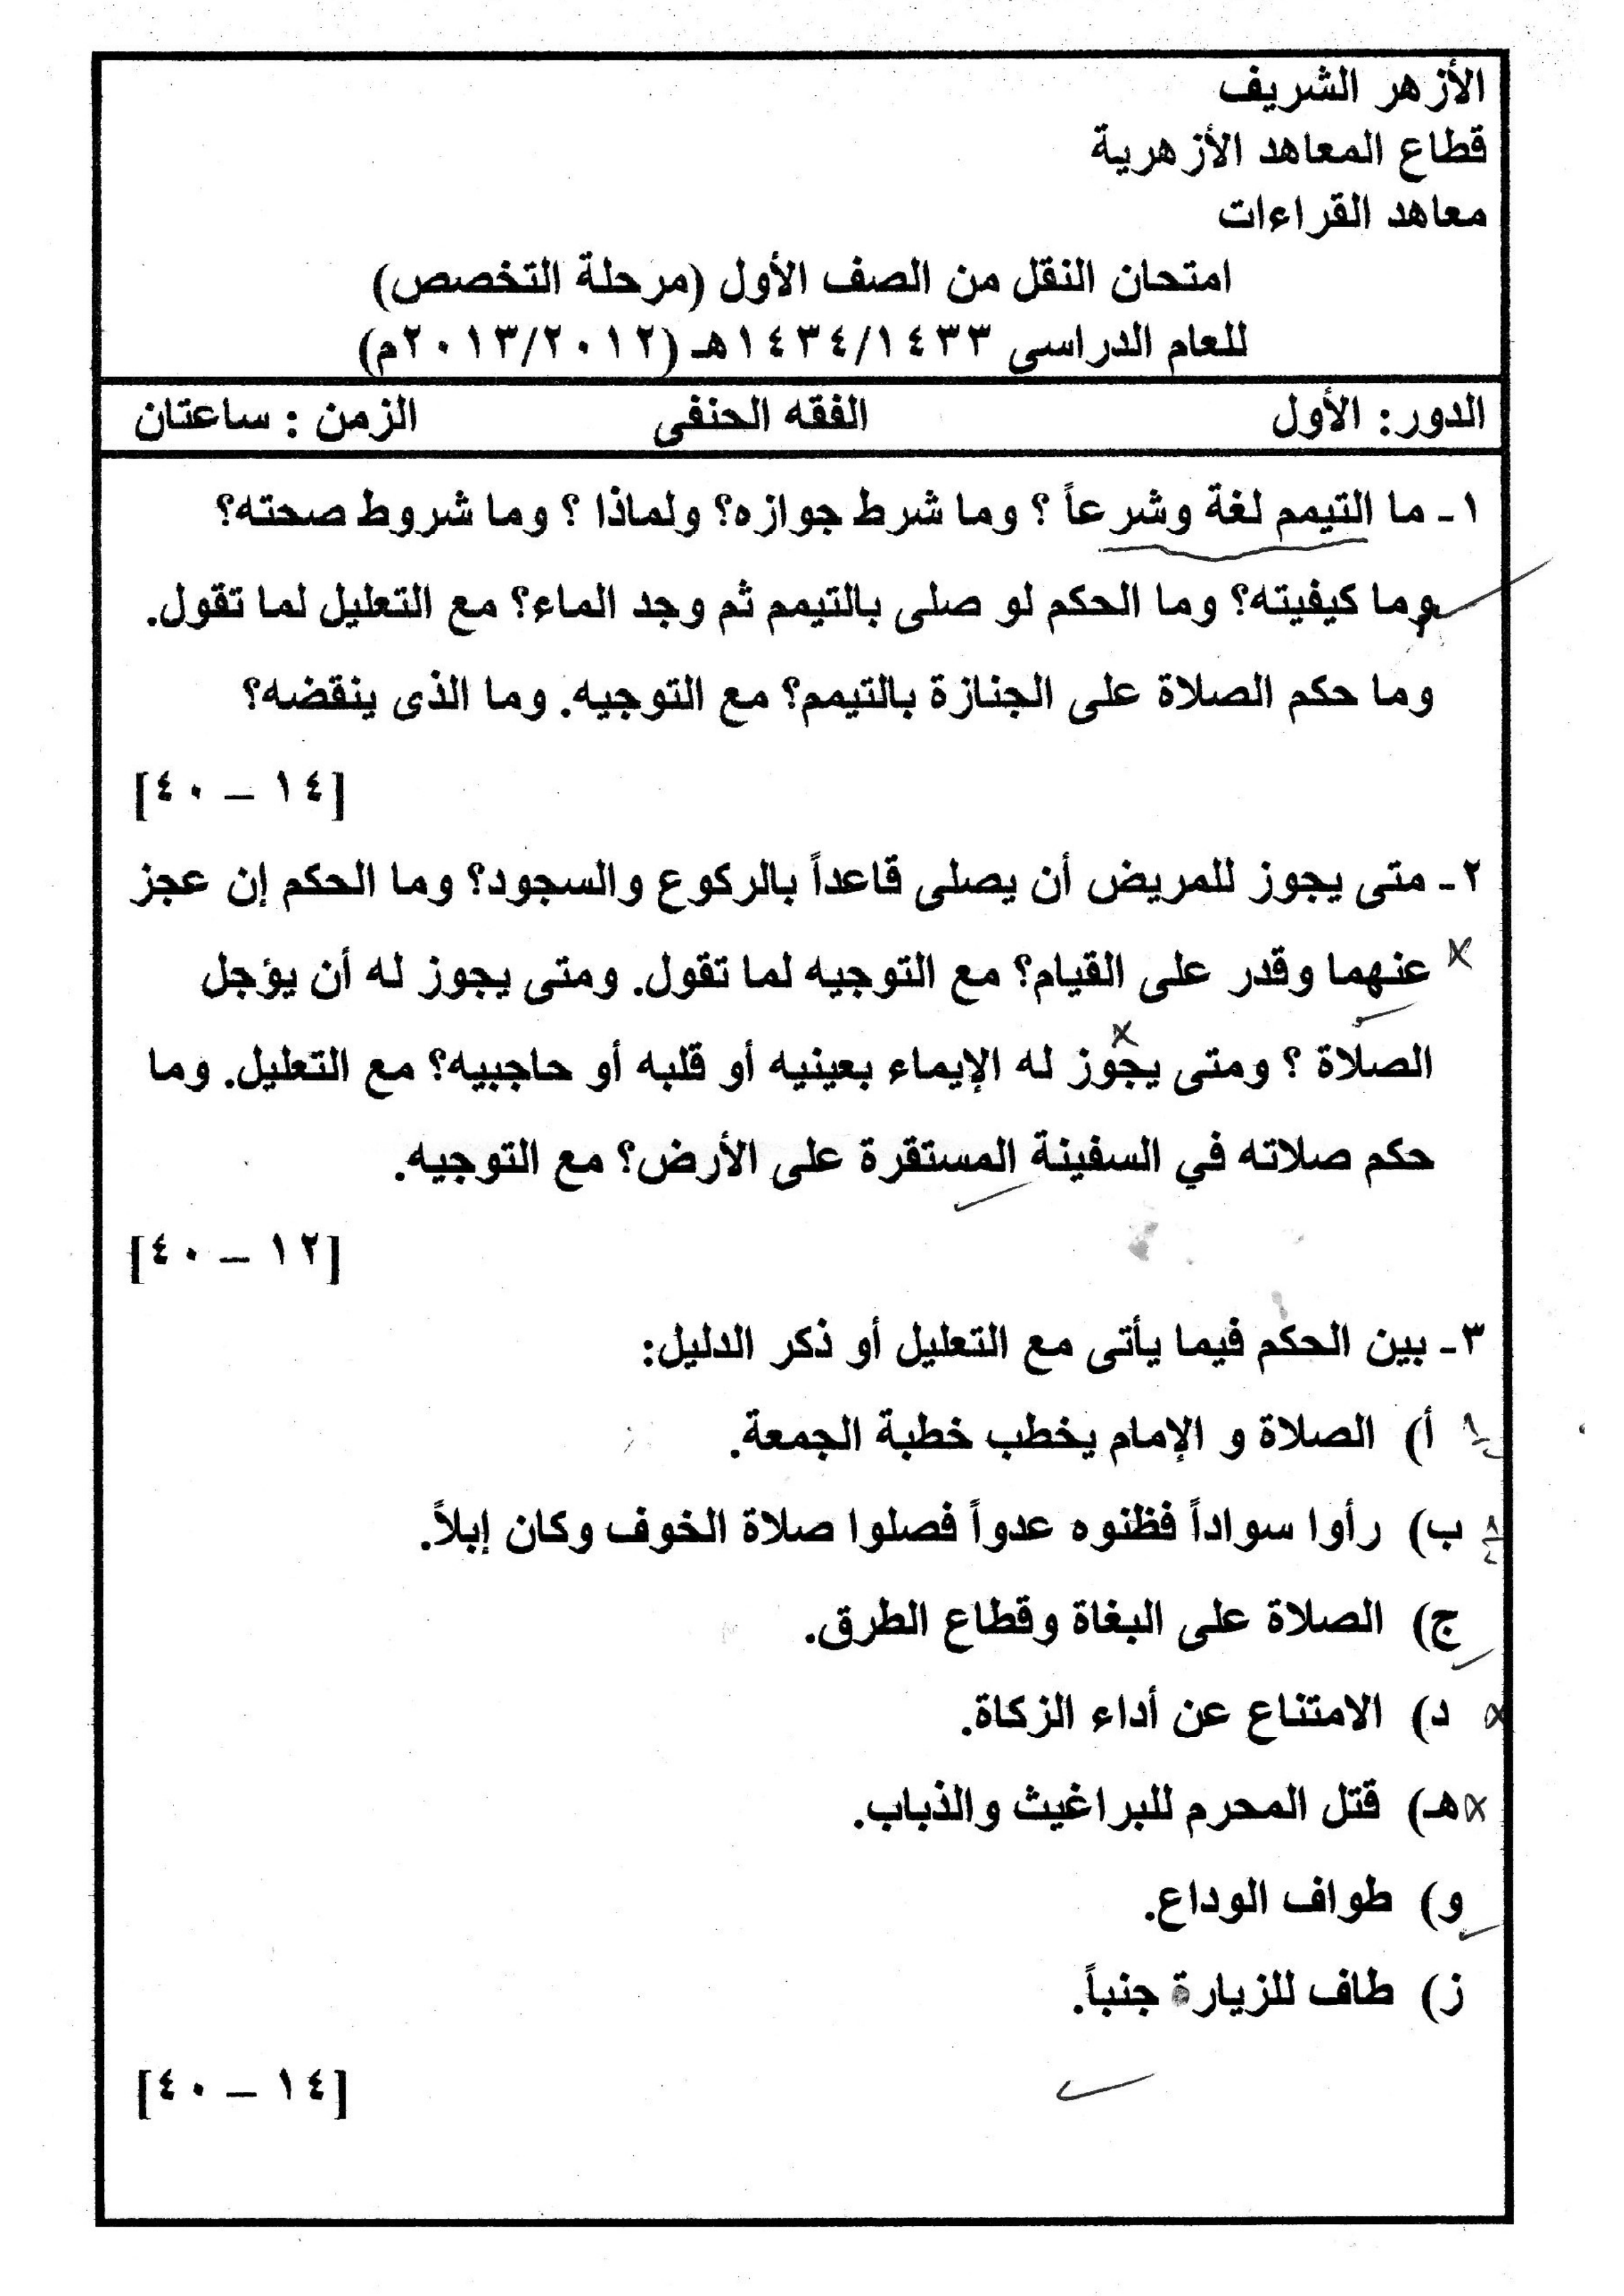 الأزهر الشريف
قطاع المعاهد الأزهرية
معاهد القراءات
امتحان النقل من الصف الأول (مرحلة التخصص)
للعام الدراسى ١٤٣٤/١٤٣٣هـ (٢٠١٣/٢٠١٢م)
الدور: الأول الفقه الحنفى الزمن : ساعتان
١- ما التيمم لغة وشرعاً ؟ وما شرط جوازه؟ ولماذا ؟ وما شروط صحته؟
وما كيفيته؟ وما الحكم لو صلى بالتيمم ثم وجد الماء؟ مع التعليل لما تقول.
وما حكم الصلاة على الجنازة بالتيمم؟ مع التوجيه. وما الذى ينقضه؟
[١٤ – ٤٠]
٢- متى يجوز للمريض أن يصلى قاعداً بالركوع والسجود؟ وما الحكم إن عجز
عنهما وقدر على القيام؟ مع التوجيه لما تقول. ومتى يجوز له أن يؤجل
الصلاة ؟ ومتى يجوز له الإيماء بعينيه أو قلبه أو حاجبيه؟ مع التعليل. وما
حكم صلاته في السفينة المستقرة على الأرض؟ مع التوجيه.
[١٢ – ٤٠]
٣- بين الحكم فيما يأتى مع التعليل أو ذكر الدليل:
أ) الصلاة و الإمام يخطب خطبة الجمعة.
ب) رأوا سواداً فظنوه عدواً فصلوا صلاة الخوف وكان إبلاً.
ج) الصلاة على البغاة وقطاع الطرق.
د) الامتناع عن أداء الزكاة.
هـ) قتل المحرم للبراغيث والذباب.
و) طواف الوداع.
ز) طاف للزيارة جنباً.
[١٤ – ٤٠]